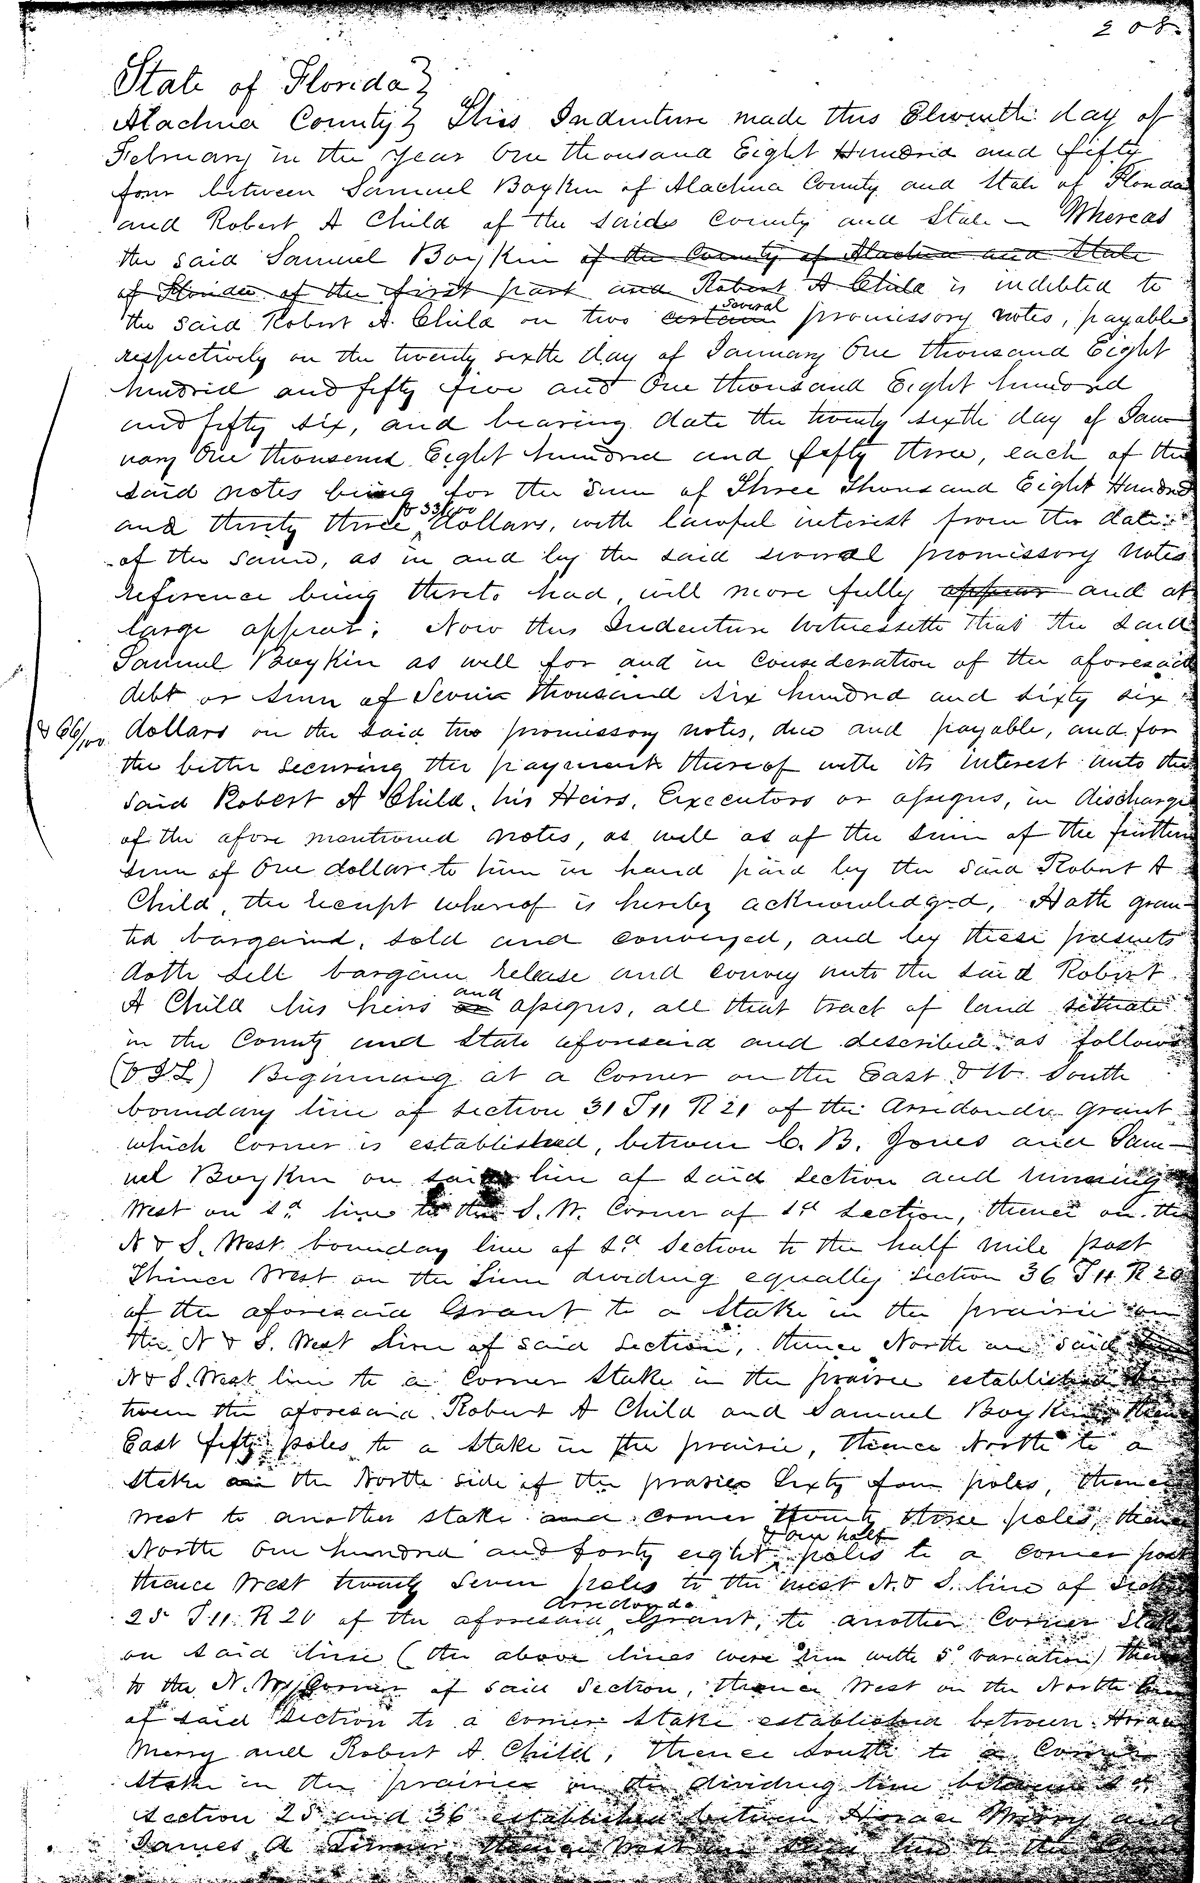 208.
State of Florida }
Alachua County } This Indenture made this Eleventh day of
February in the year One thousand Eight Hundred and fifty
four between Samuel Boykin of Alachua County and State of Florida
and Robert A Child of the said County and State — Whereas
the said Samuel Boykin of the County of Alachua and State
of Florida of the first part and Robert A Child is indebted to
the said Robert A. Child on two certain several promissory notes, payable
respectively on the twenty sixth day of January One thousand Eight
hundred and fifty five and One thousand Eight hundred
and fifty six, and bearing date the twenty sixth day of Jan-
uary One thousand Eight hundred and fifty three, each of the
said notes being for the Sum of Three Thousand Eight Hundred
and thirty three & 33/100 dollars, with lawful interest from the date
of the same, as in and by the said several promissory notes
reference being thereto had, will more fully appear and at
large appear; Now this Indenture Witnesseth that the said
Samuel Boykin as well for and in consideration of the aforesaid
debt or sum of Seven thousand six hundred and sixty six
& 66/100 dollars on the said two promissory notes, due and payable, and for
the better securing the payment thereof with its interest unto the
said Robert A Child, his Heirs, Executors or assigns, in discharge
of the afore mentioned notes, as well as of the sum of the further
sum of One dollar to him in hand paid by the said Robert A
Child, the receipt whereof is hereby acknowledged, Hath gran-
ted bargained, sold and conveyed, and by these presents
doth sell bargain release and convey unto the said Robert
A Child his heirs or and assigns, all that tract of land situate
in the County and State aforesaid and described as follows
Beginning at a Corner on the East & W. South
boundary line of section 31 T 11 R 21 of the Arredondo grant
which corner is established, between C. B. Jones and Sam-
uel Boykin on said line of said section and running
West on sd. line to the S. W. Corner of sd section, thence on the
N & S. West boundary line of sd. Section to the half mile post
Thence West on the Line dividing equally section 36 T 11 R 20
of the aforesaid Grant to a Stake in the prairie on
the N & S. West line of said section, thence North on said
N & S. West line to a corner Stake in the prairie established be-
tween the aforesaid Robert A Child and Samuel Boykin, thence
East fifty poles to a stake in the prairie, thence North to a
stake on the North side of the prairie Sixty four poles, thence
West to another stake and corner thirty three poles, thence
North One hundred and forty eight & one half poles to a corner post
thence West twenty seven poles to the west N. & S. line of Section
25 T 11 R 20 of the aforesaid Arredondo Grant, to another Corner Stake
on said line (the above lines were run with 5° variation) thence
to the N. W. Corner of said section, thence West on the North line
of said section to a corner stake established between Horace
Merry and Robert A. Child, thence South to a Corner
stake in the prairie on the dividing line between sd
section 25 and 36 established between Horace Merry and
James A Turner, thence West on said line to the